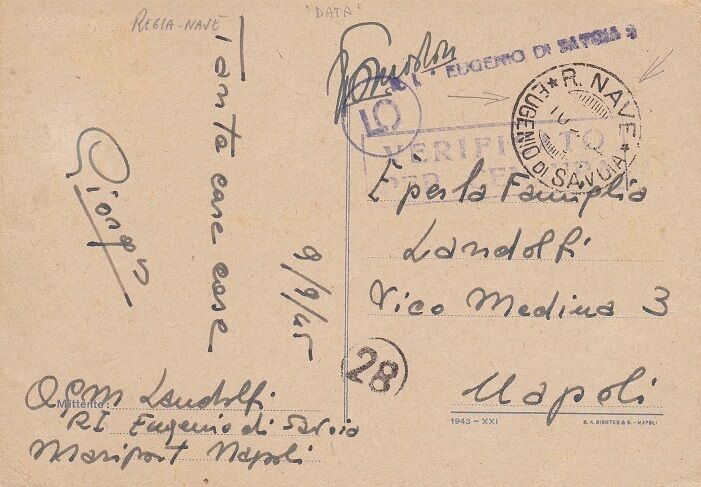 REGIA-NAVE
"DATA"
EUGENIO DI SAVOIA
★ R. NAVE ★
EUGENIO DI SAVOIA
10
VERIFICATO
PER CENSURA
Tante care cose
Giorgio
9/9/45
È per la Famiglia
Landolfi
Vico Medina 3
Napoli
28
Mittente:
Landolfi
RI Eugenio di Savoia
Mariport Napoli
1943 - XXI
S. A. RICHTER & C. - NAPOLI